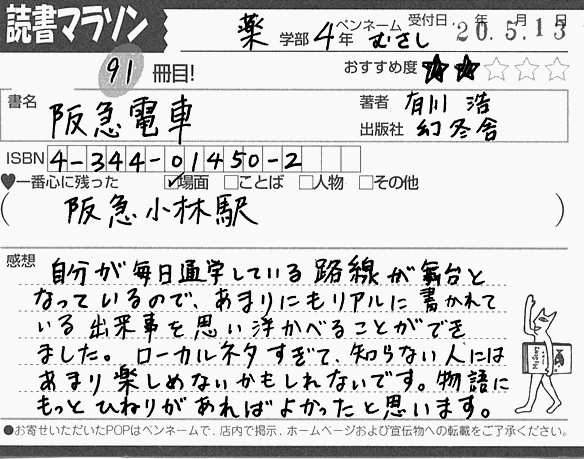 読書マラソン
薬 学部 4年 ペンネーム むさし 受付日 '20年 5月 13日
91 冊目! おすすめ度 ★★☆☆☆
書名 阪急電車 著者 有川 浩
出版社 幻冬舎
ISBN 4-344-01450-2
♥一番心に残った ☑場面 □ことば □人物 □その他
( 阪急小林駅 )
感想 自分が毎日通学している路線が舞台と
なっているので、あまりにもリアルに書かれて
いる出来事を思い浮かべることができ
ました。ローカルネタすぎて、知らない人には
あまり楽しめないかもしれないです。物語に
もっとひねりがあればよかったと思います。
●お寄せいただいたPOPはペンネームで、店内で掲示、ホームページおよび宣伝物への転載をご了承ください。